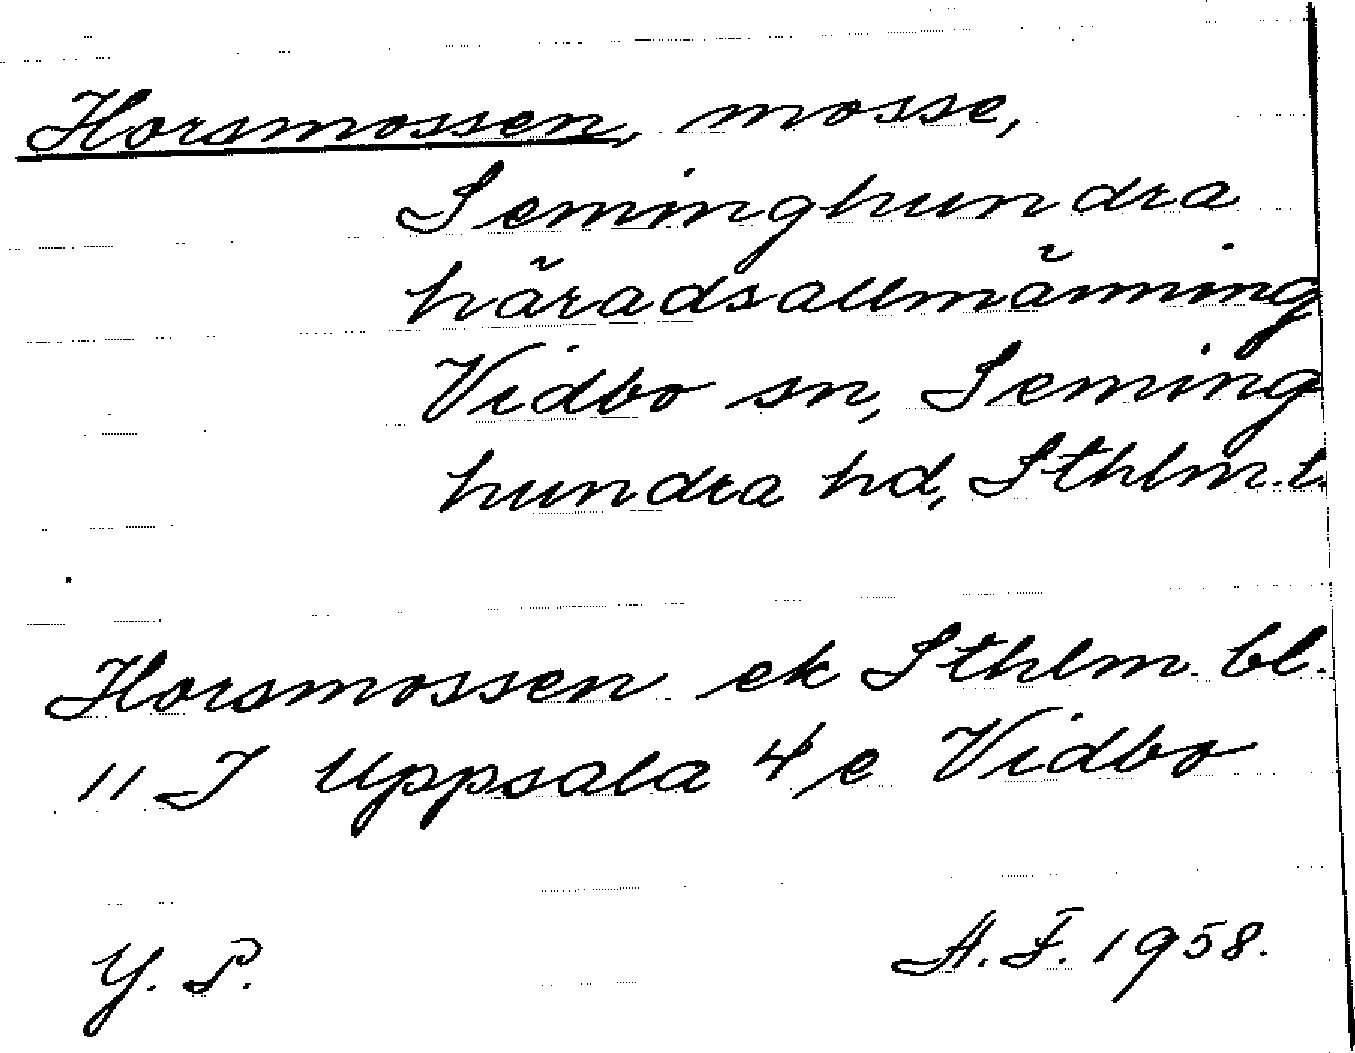 Horsmossen, mosse,
Seminghundra
häradsallmänning
Vidbo sn, Seming
hundra hd, Sthlm. l.
Horsmossen ek Sthlm. bl.
11 I Uppsala 4 e Vidbo
Y. P. A. F. 1958.